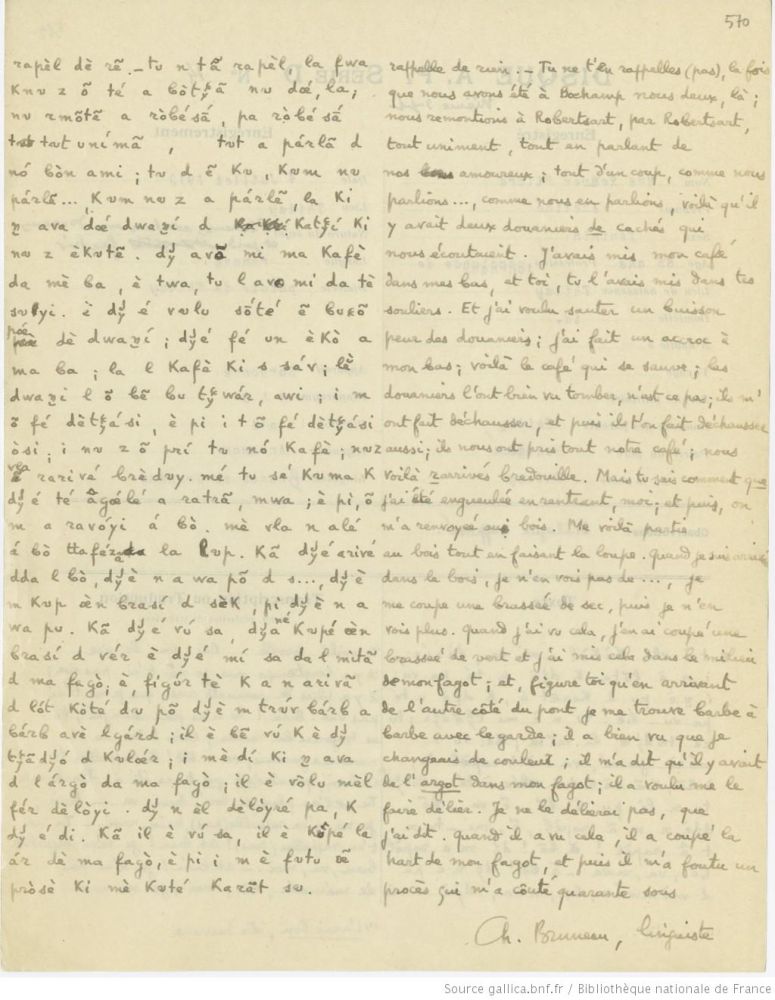 570
rapèl dè rẽ. – tu n tã rapèl, la fwa
Knu z õ té a bòtʃã nu dœ́, la;
nu rmõtẽ a ròbésá, pa ròbésá
tut unímã, tut a párlã d
nó bòn ami; tu d ẽ Ku, Kum nu
párlẽ... Kum nu z a párlẽ, la Ki
y ava dœ́ dwaní d Katʃí Ki
nu z èKutẽ. dj avõ mi ma Kafè
da mè ba, è twa, tu l avo mi da tè
è dj é vulu sóté ẽ buKõ
dè dwaní; dj é fé un èKò a
ma ba; la l Kafè Ki s sáv; lè
dwani l õ bẽ bu tʃwár, awi; i m
õ fé dètʃási, è pi i t õ fé dètʃási
òsi; i nu z õ prí tu nó Kafè; nuz
vla rarivé brèduy. mé tu sé Kuma K
dj é té ãgœlé a ratrã, mwa; è pi, õ
m a ravóyi á bò. mè vla n alé
á bò la lup. Kã dj é arivé
dda l bò, dj è n a wa põ d s..., dj è
m Kup œ̀n brasí d sèK, pi dj è n a
wa pu. Kã dj é vú sa, dj a né Kupé œ̀n
brasí d vér è dj é mí sa da l mitã
d ma fagò; è, figúr tè K a n arivã
d lót Kóté du põ dj è m trúv bárb a
bárb avè l gárd; il è bẽ vú K è dj
tʃãdjó d Kulœr; i mè dí Ki y ava
d l árgò da ma fagò; il è vòlu mèl
fér dèlòyi. dj n èl dèlóyré pa, K
dj é di. Kã il è vú sa, il è Kõpé la
ár dè ma fagò, è pi i m è futu œ̃
pròsè Ki mè Kuté Karãt su.
rappelle de rien. – Tu ne t'en rappelles (pas), la fois
que nous avons été à Bochamp nous deux, là;
nous remontions à Robertsart, par Robertsart,
tout uniment, tout en parlant de
nos amoureux; tout d'un coup, comme nous
parlions..., comme nous en parlions, voilà qu'il
y avait deux douaniers de cachés qui
nous écoutaient. J'avais mis mon café
dans mes bas, et toi, tu l'avais mis dans tes
souliers. Et j'ai voulu sauter un buisson
peur des douaniers; j'ai fait un accroc à
mon bas; voilà le café qui se sauve; les
douaniers l'ont bien vu tomber, n'est ce pas; ils m'
ont fait déchausser, et puis ils t'on fait déchausser
aussi; ils nous ont pris tout notre café; nous
voilà rarrivés bredouille. Mais tu sais comment que
j'ai été engueulée en rentrant, moi; et puis, on
m'a renvoyée au bois. Me voilà partie
au bois tout en faisant la loupe. Quand je suis arrivée
dans le bois, je n'en vois pas de ..., je
me coupe une brassée de sec, puis je n'en
vois plus. Quand j'ai vu cela, j'en ai coupé une
brassée de vert et j'ai mis cela dans le milieu
de mon fagot; et, figure toi qu'en arrivant
de l'autre côté du pont je me trouve barbe à
barbe avec le garde; il a bien vu que je
changeais de couleur; il m'a dit qu'il y avait
de l'argot dans mon fagot; il a voulu me le
faire délier. Je ne le délierai pas, que
j'ai dit. Quand il a vu cela, il a coupé la
hart de mon fagot, et puis il m'a foutu un
procès qui m'a coûté quarante sous
Ch. Bruneau, linguiste
Source gallica.bnf.fr / Bibliothèque nationale de France